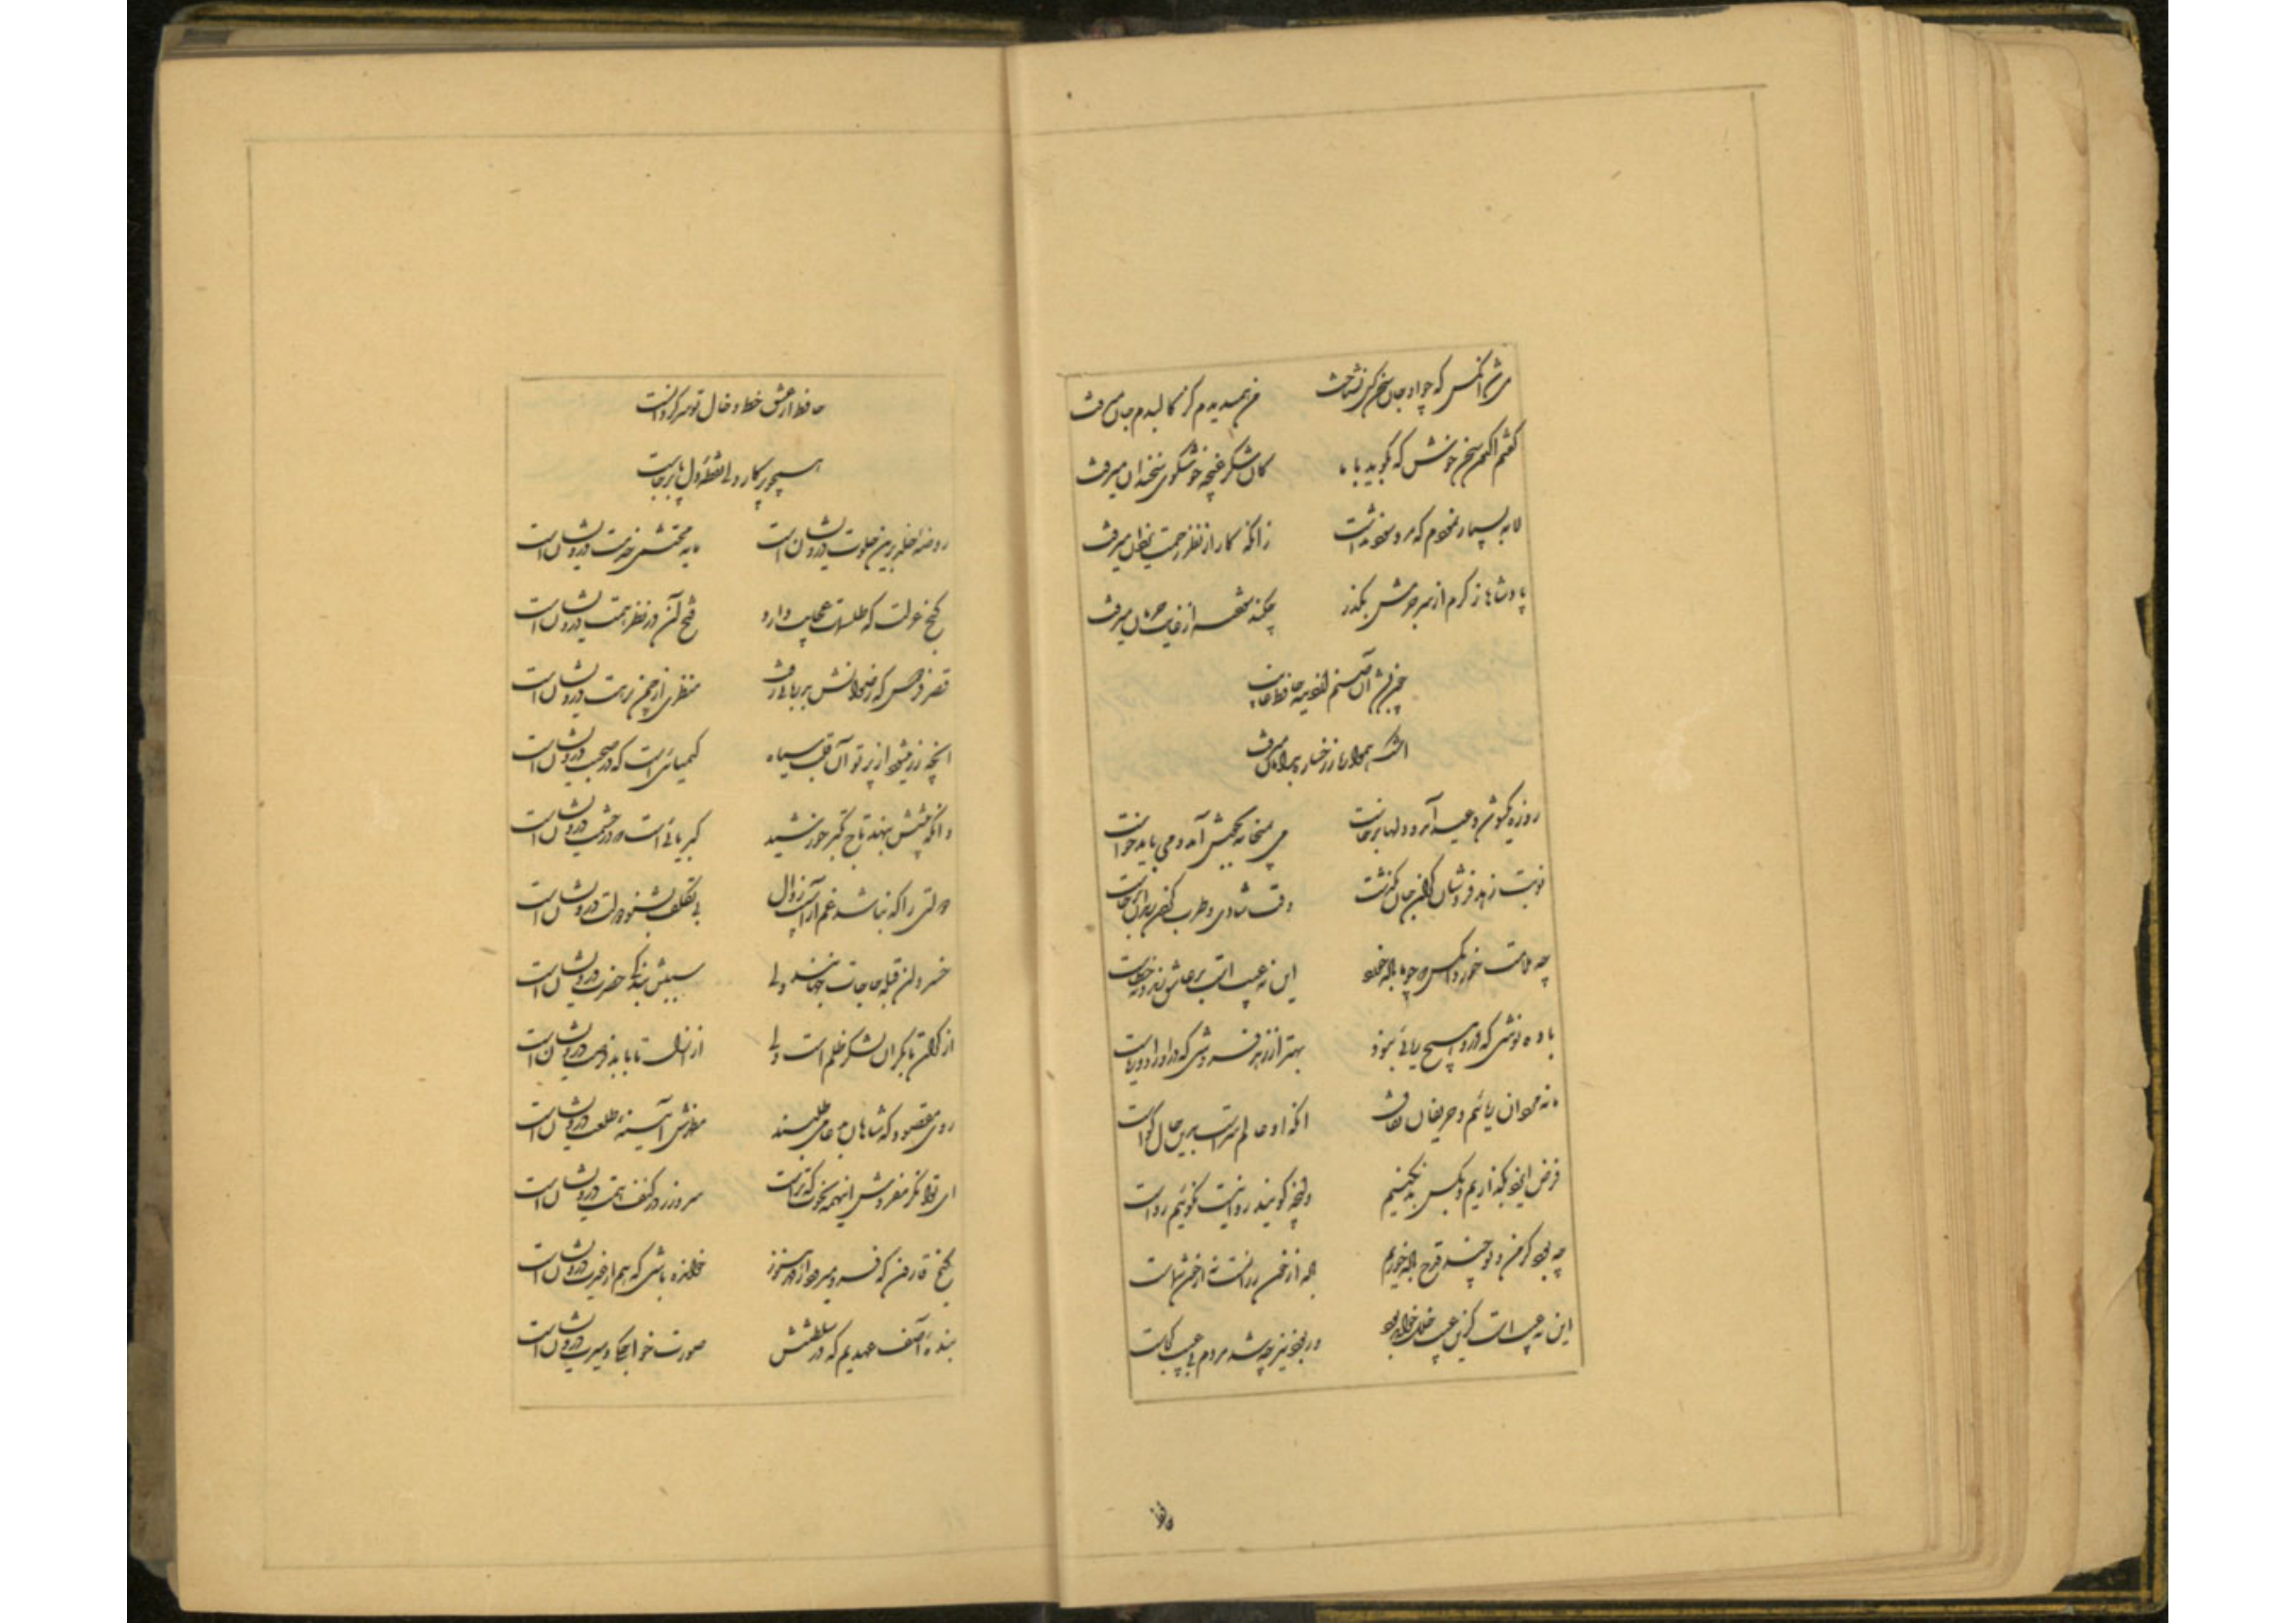 می شد آنکس که چو او جان سخن کس نشناخت
من همیدیدم کز کالبدم جان میرفت
گفتم اکنون سخن خوش که بگوید با ما
کان شکر غنچه خوشگوی سخندان میرفت
لابه بسیار نمودم که مرو سود نداشت
زانکه کار از نظر رحمت سلطان میرفت
پادشاها ز کرم از سر جرمش بگذر
چکند سوخته از غایت حرمان میرفت
آن صنم حافظ
اشک همواره ز رخساره بدامان میرفت
روزه یکسو شد و عید آمد و دلها برخاست
می بمیخانه بجوش آمد و می باید خواست
نوبت زهد فروشان گران جان بگذشت
وقت شادی و طرب کردن رندان برجاست
چه ملامت خورد آنکس که چو ما باده خورد
این نه عیب است بر عاشق رند و نه خطاست
باده نوشی که درو هیچ ریائی نبود
بهتر از زهد فروشی که درو روی و ریاست
ما نه مردان ریائیم و حریفان نفاق
آنکه او عالم سر است برین حال گواست
فرض ایزد بگذاریم و بکس بد نکنیم
وانچه گویند روا نیست نگوئیم رواست
چه بود گر من و تو چند قدح باده خوریم
باده از خون رزانست نه از خون شماست
این نه عیب است کزین عیب خلل خواهد بود
ور بود نیز چه شد مردم بی عیب کجاست
حافظ
حافظ از عشق خط و خال تو سرگردانست
همچو پرگار ولی نقطه دل پابرجاست
روضه خلد برین خلوت درویشان است
مایه محتشمی خدمت درویشان است
گنج عزلت که طلسمات عجایب دارد
فتح آن در نظر همت درویشان است
قصر فردوس که رضوانش بدربانی رفت
منظری از چمن نزهت درویشان است
آنچه زر میشود از پرتو آن قلب سیاه
کیمیائی است که در صحبت درویشان است
وانکه پیشش بنهد تاج تکبر خورشید
کبریائی است که در حشمت درویشان است
دولتی را که نباشد غم از آسیب زوال
بی تکلف بشنو دولت درویشان است
خسروان قبله حاجات جهانند ولی
سببش بندگی حضرت درویشان است
از کران تا بکران لشکر ظلم است ولی
از ازل تا بابد فرصت درویشان است
روی مقصود که شاهان بدعا میطلبند
مظهرش آینه طلعت درویشان است
ای توانگر مفروش اینهمه نخوت که ترا است
سر و زر در کنف همت درویشان است
گنج قارون که فرو میرود از قهر هنوز
خوانده باشی که هم از غیرت درویشان است
بنده آصف عهدیم که در سلطنتش
صورت خواجگی و سیرت درویشان است